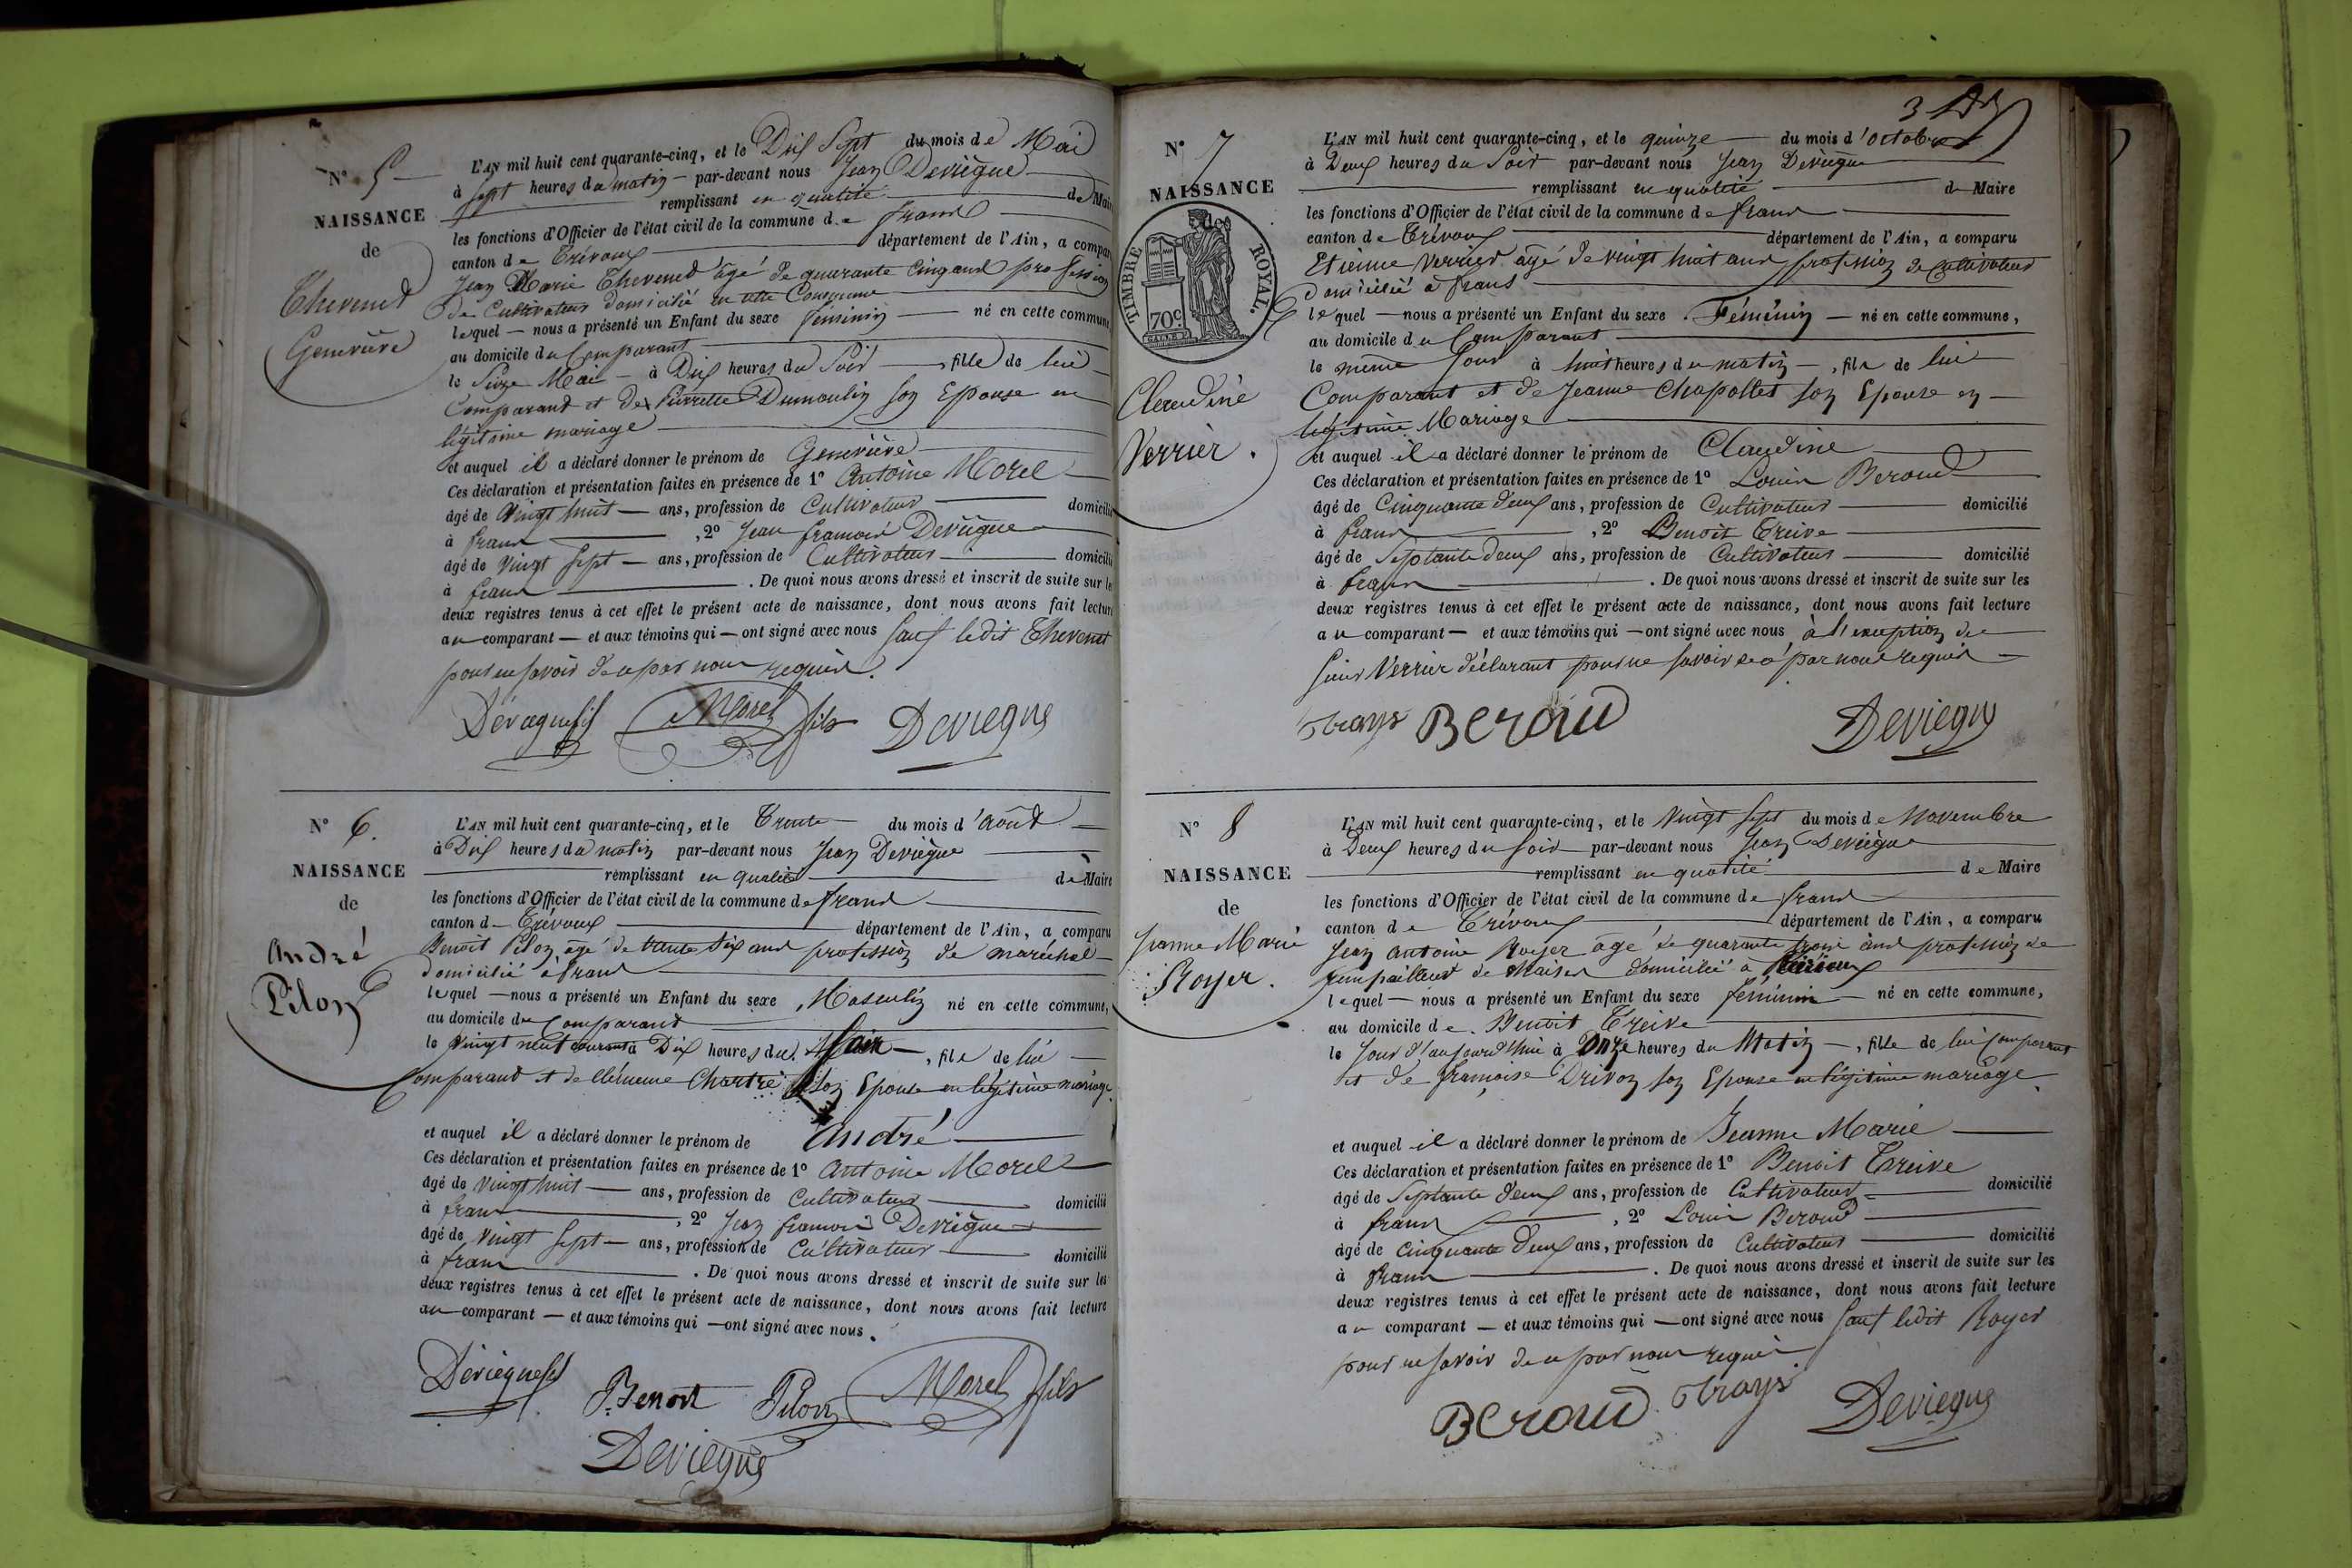 N° 5
NAISSANCE
de
Thevenet
Geneviève
L'AN mil huit cent quarante-cinq, et le Dix Sept du mois de Mai
à sept heures du matin par-devant nous Jean Deviègue
remplissant en qualité de Maire
les fonctions d'Officier de l'état civil de la commune de frans
canton de Trévoux département de l'Ain, a compar
Jean Marie Thevenet âgé de quarante Cinq ans profession
de Cultivateur domicilié en cette Commune
lequel nous a présenté un Enfant du sexe féminin né en cette commune
au domicile du Comparant
le Seize Mai à Dix heures du Soir , fille de lui
Comparant et de Pierrette Dumoulin son Epouse en
légitime mariage
et auquel il a déclaré donner le prénom de Geneviève
Ces déclaration et présentation faites en présence de 1° Antoine Morel
âgé de Vingt huit ans, profession de Cultivateur domicilié
à frans , 2° Jean francois Deviègue
âgé de Vingt Sept ans, profession de Cultivateur domicilié
à frans . De quoi nous avons dressé et inscrit de suite sur le
deux registres tenus à cet effet le présent acte de naissance, dont nous avons fait lecture
au comparant et aux témoins qui ont signé avec nous sauf ledit Thevenet
pour ne savoir de ce par nous requis.
Morel fils Deviegue
N° 6.
NAISSANCE
de
André
Pilon
L'AN mil huit cent quarante-cinq, et le Trente du mois d'août
à Dix heures du matin par-devant nous Jean Deviègue
remplissant en qualité de Maire
les fonctions d'Officier de l'état civil de la commune de frans
canton de Trévoux département de l'Ain, a comparu
Benoit Pilon âgé de trente Six ans profession de maréchal
domicilié à frans
lequel nous a présenté un Enfant du sexe Masculin né en cette commune,
au domicile du Comparant
le Vingt neuf courant à Dix heures du Soir , fils de lui
Comparant et de Clémence Chartre Son Epouse en légitime mariage.
et auquel il a déclaré donner le prénom de André
Ces déclaration et présentation faites en présence de 1° Antoine Morel
âgé de Vingt huit ans, profession de Cultivateur domicilié
à frans , 2° Jean francois Deviègue
âgé de Vingt Sept ans, profession de Cultivateur domicilié
à frans . De quoi nous avons dressé et inscrit de suite sur les
deux registres tenus à cet effet le présent acte de naissance, dont nous avons fait lecture
au comparant et aux témoins qui ont signé avec nous.
Benoit Pilon Morel fils
Deviegue
3
N° 7
NAISSANCE
TIMBRE ROYAL.
70c
Claudine
Verrier.
L'AN mil huit cent quarante-cinq, et le quinze du mois d'octobre
à Deux heures du Soir par-devant nous Jean Deviègue
remplissant en qualité de Maire
les fonctions d'Officier de l'état civil de la commune de frans
canton de Trévoux département de l'Ain, a comparu
Etienne Verrier âgé de vingt huit ans profession de Cultivateur
domicilié à frans
lequel nous a présenté un Enfant du sexe Féminin né en cette commune,
au domicile du Comparant
le même jour à huit heures du matin , fille de lui
Comparant et de Jeanne Chapollet son Epouse en
légitime Mariage
et auquel il a déclaré donner le prénom de Claudine
Ces déclaration et présentation faites en présence de 1° Louis Beroud
âgé de Cinquante deux ans, profession de Cultivateur domicilié
à frans , 2° Benoit Treive
âgé de Septante deux ans, profession de Cultivateur domicilié
à frans . De quoi nous avons dressé et inscrit de suite sur les
deux registres tenus à cet effet le présent acte de naissance, dont nous avons fait lecture
au comparant et aux témoins qui ont signé avec nous à l'exception de
Sieur Verrier déclarant pour ne savoir de ce par nous requis
Beroud Deviegue
N° 8
NAISSANCE
de
Jeanne Marie
Royer.
L'AN mil huit cent quarante-cinq, et le Vingt Sept du mois de Novembre
à Deux heures du Soir par-devant nous Jean Deviègue
remplissant en qualité de Maire
les fonctions d'Officier de l'état civil de la commune de frans
canton de Trévoux département de l'Ain, a comparu
Jean Antoine Royer âgé de quarante trois ans profession de
rempailleur de Chaises domicilié à
lequel nous a présenté un Enfant du sexe féminin né en cette commune,
au domicile de Benoit Treive
le Jour d'aujourd'hui à Onze heures du Matin , fille de lui Comparant
et de françoise Drivon son Epouse en légitime mariage.
et auquel il a déclaré donner le prénom de Jeanne Marie
Ces déclaration et présentation faites en présence de 1° Benoit Treive
âgé de Septante deux ans, profession de Cultivateur domicilié
à frans , 2° Louis Beroud
âgé de cinquante deux ans, profession de Cultivateur domicilié
à frans . De quoi nous avons dressé et inscrit de suite sur les
deux registres tenus à cet effet le présent acte de naissance, dont nous avons fait lecture
au comparant et aux témoins qui ont signé avec nous sauf ledit Royer
pour ne savoir de ce par nous requis.
Beroud Deviegue